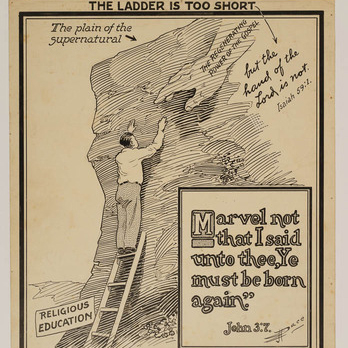 THE LADDER IS TOO SHORT
The plain of the
supernatural
THE REGENERATING
POWER OF THE GOSPEL
but the
hand of the
Lord is not.
Isaiah 59:1.
Marvel not
that I said
unto thee, Ye
must be born
again."
John 3:7.
RELIGIOUS
EDUCATION
Pace